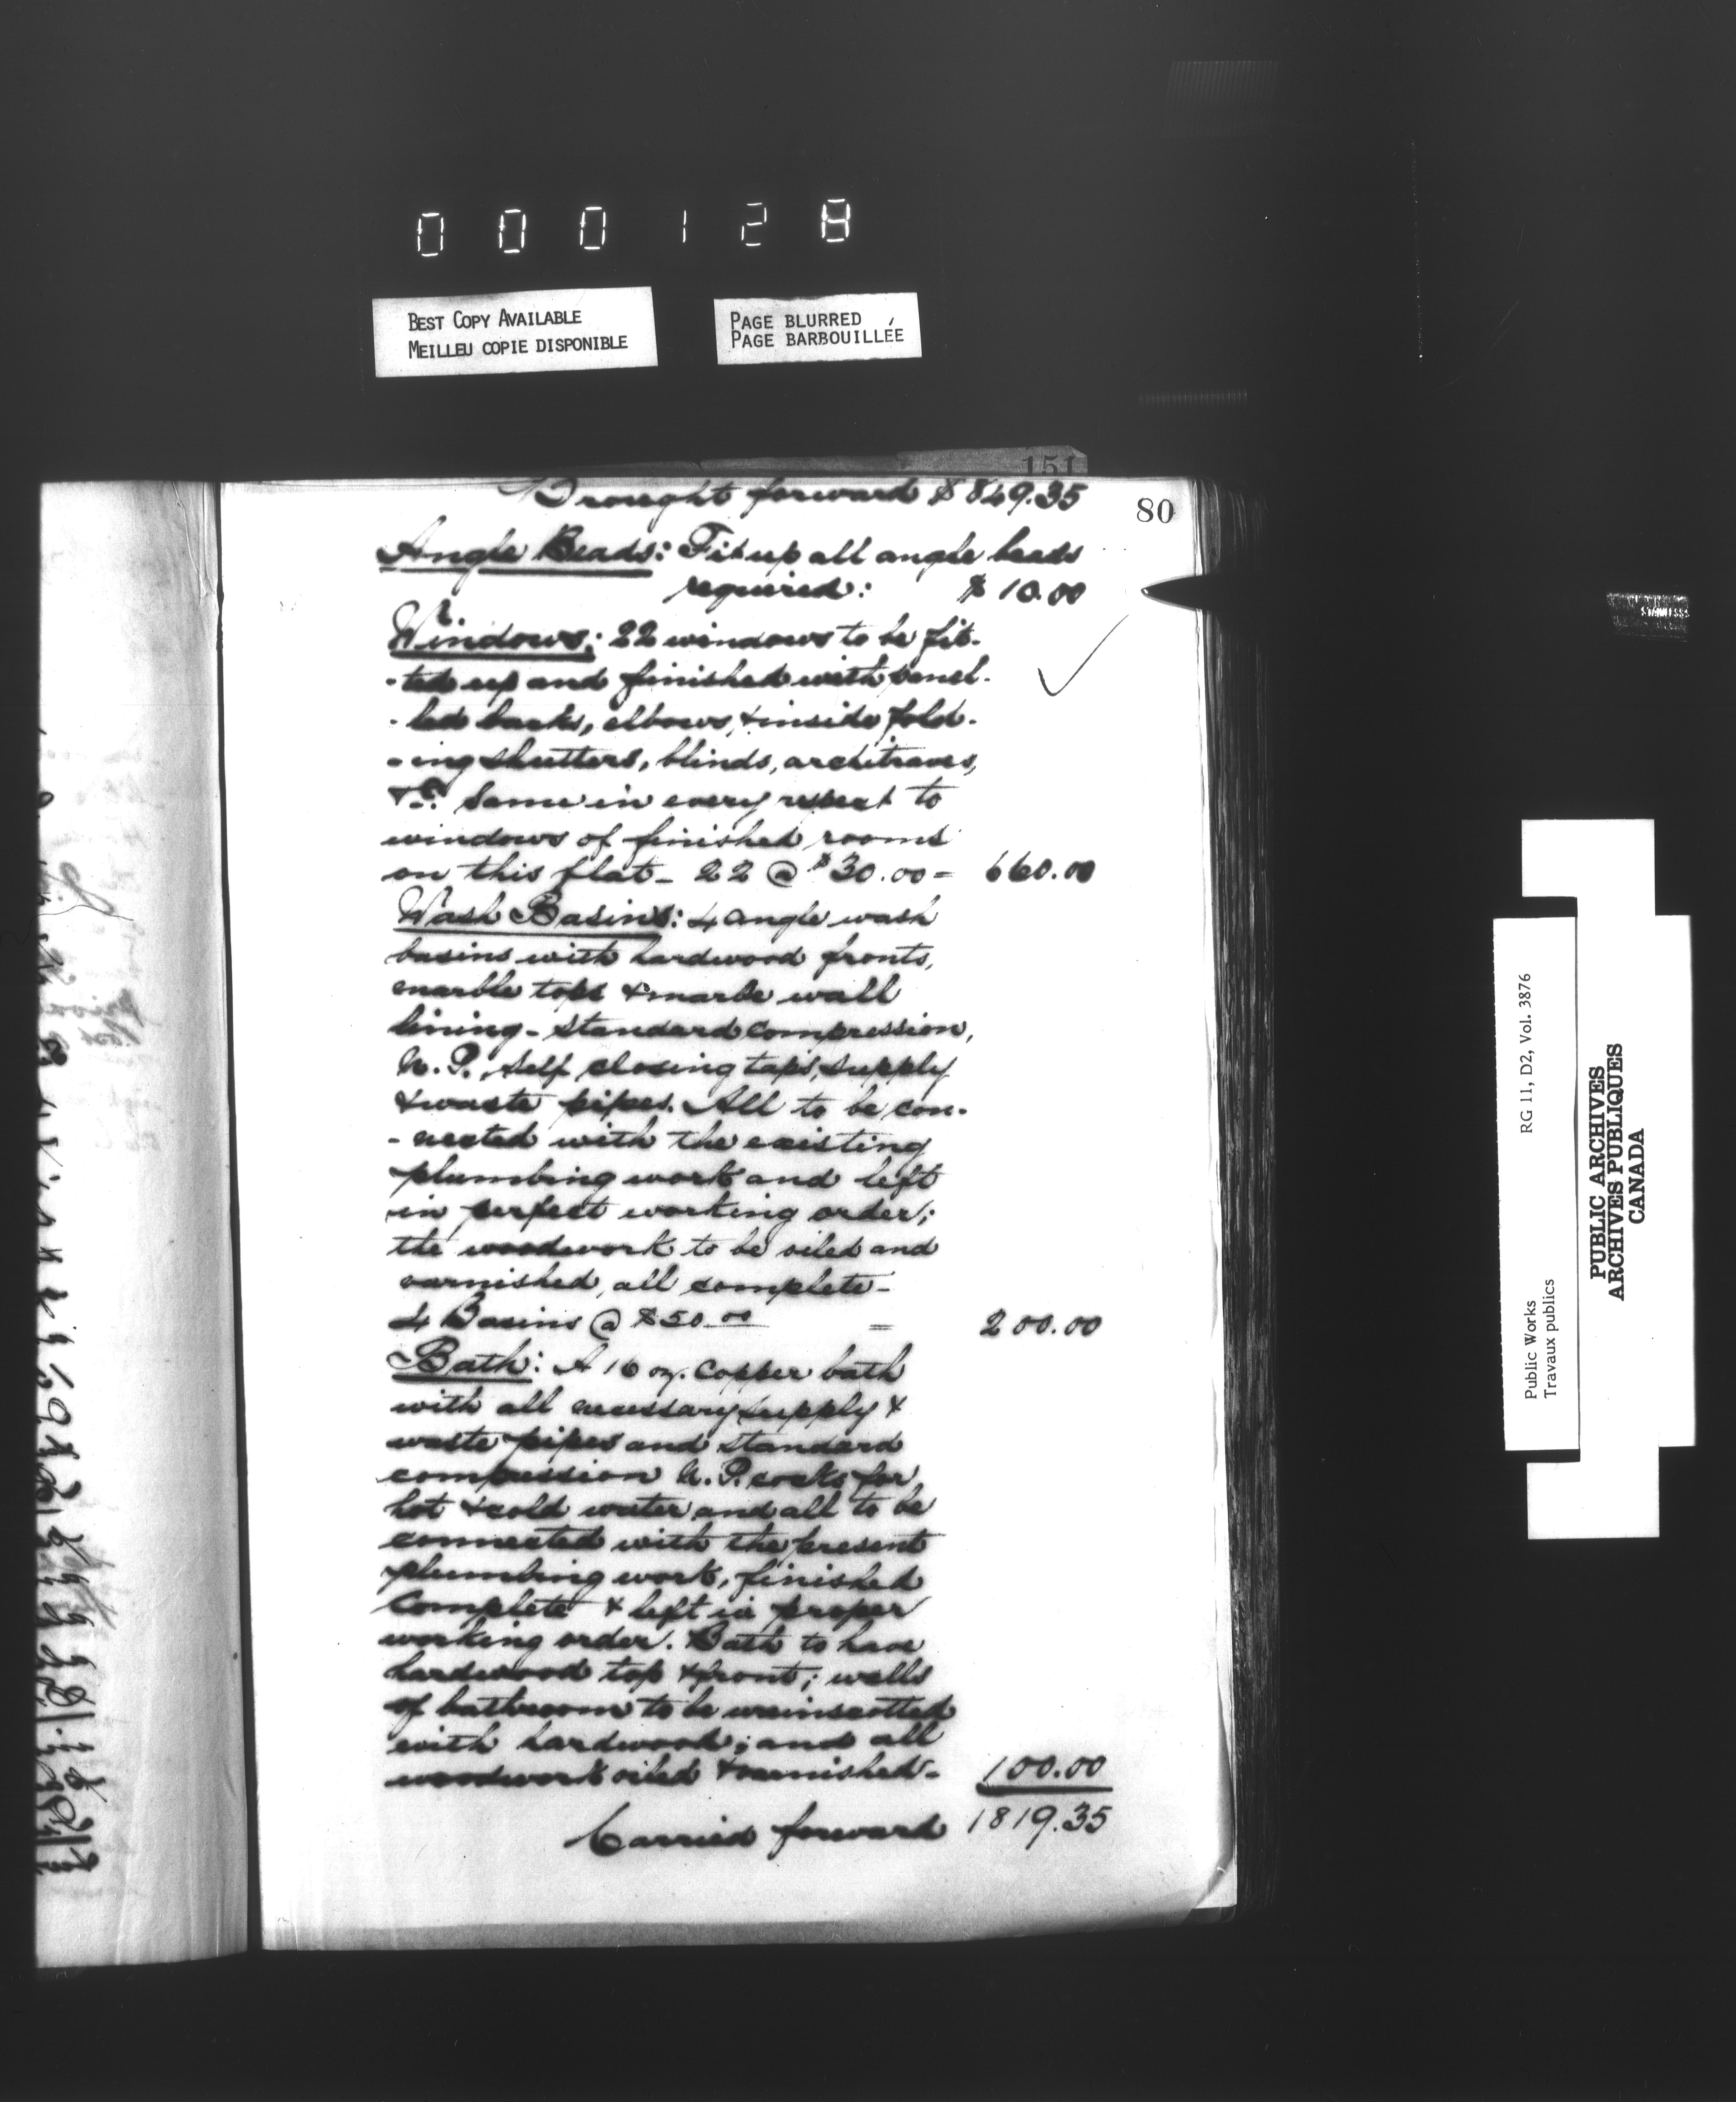 000128
BEST COPY AVAILABLE
MEILLEU COPIE DISPONIBLE
PAGE BLURRED
PAGE BARBOUILLÉE
151
80
Brought forward $849.35
Angle Beads: Fit up all angle beads
required: $10.00
Windows: 22 windows to be fit-
-ted up and finished with panel-
-led backs, elbows, & inside fold-
-ing shutters, blinds, architraves,
&c. same in every respect to
windows of finished rooms
on this flat - 22 @ $30.00 = 660.00
Wash Basins: 4 angle wash
basins with hardwood fronts,
marble tops & marble wall
lining - standard compression,
N.P. self closing taps, supply
& waste pipes. All to be con-
-nected with the existing
plumbing work and left
in perfect working order;
the woodwork to be oiled and
varnished, all complete -
4 Basins @ $50.00 = 200.00
Bath: A 16 oz. copper bath
with all necessary supply &
waste pipes and standard
compression N.P. cocks for
hot & cold water and all to be
connected with the present
plumbing work, finished
complete & left in proper
working order. Bath to have
hardwood top & front; walls
of bathroom to be wainscotted
with hardwood; and all
woodwork oiled & varnished - 100.00
Carried forward 1819.35
RG 11, D2, Vol. 3876
Public Works
Travaux publics
PUBLIC ARCHIVES
ARCHIVES PUBLIQUES
CANADA